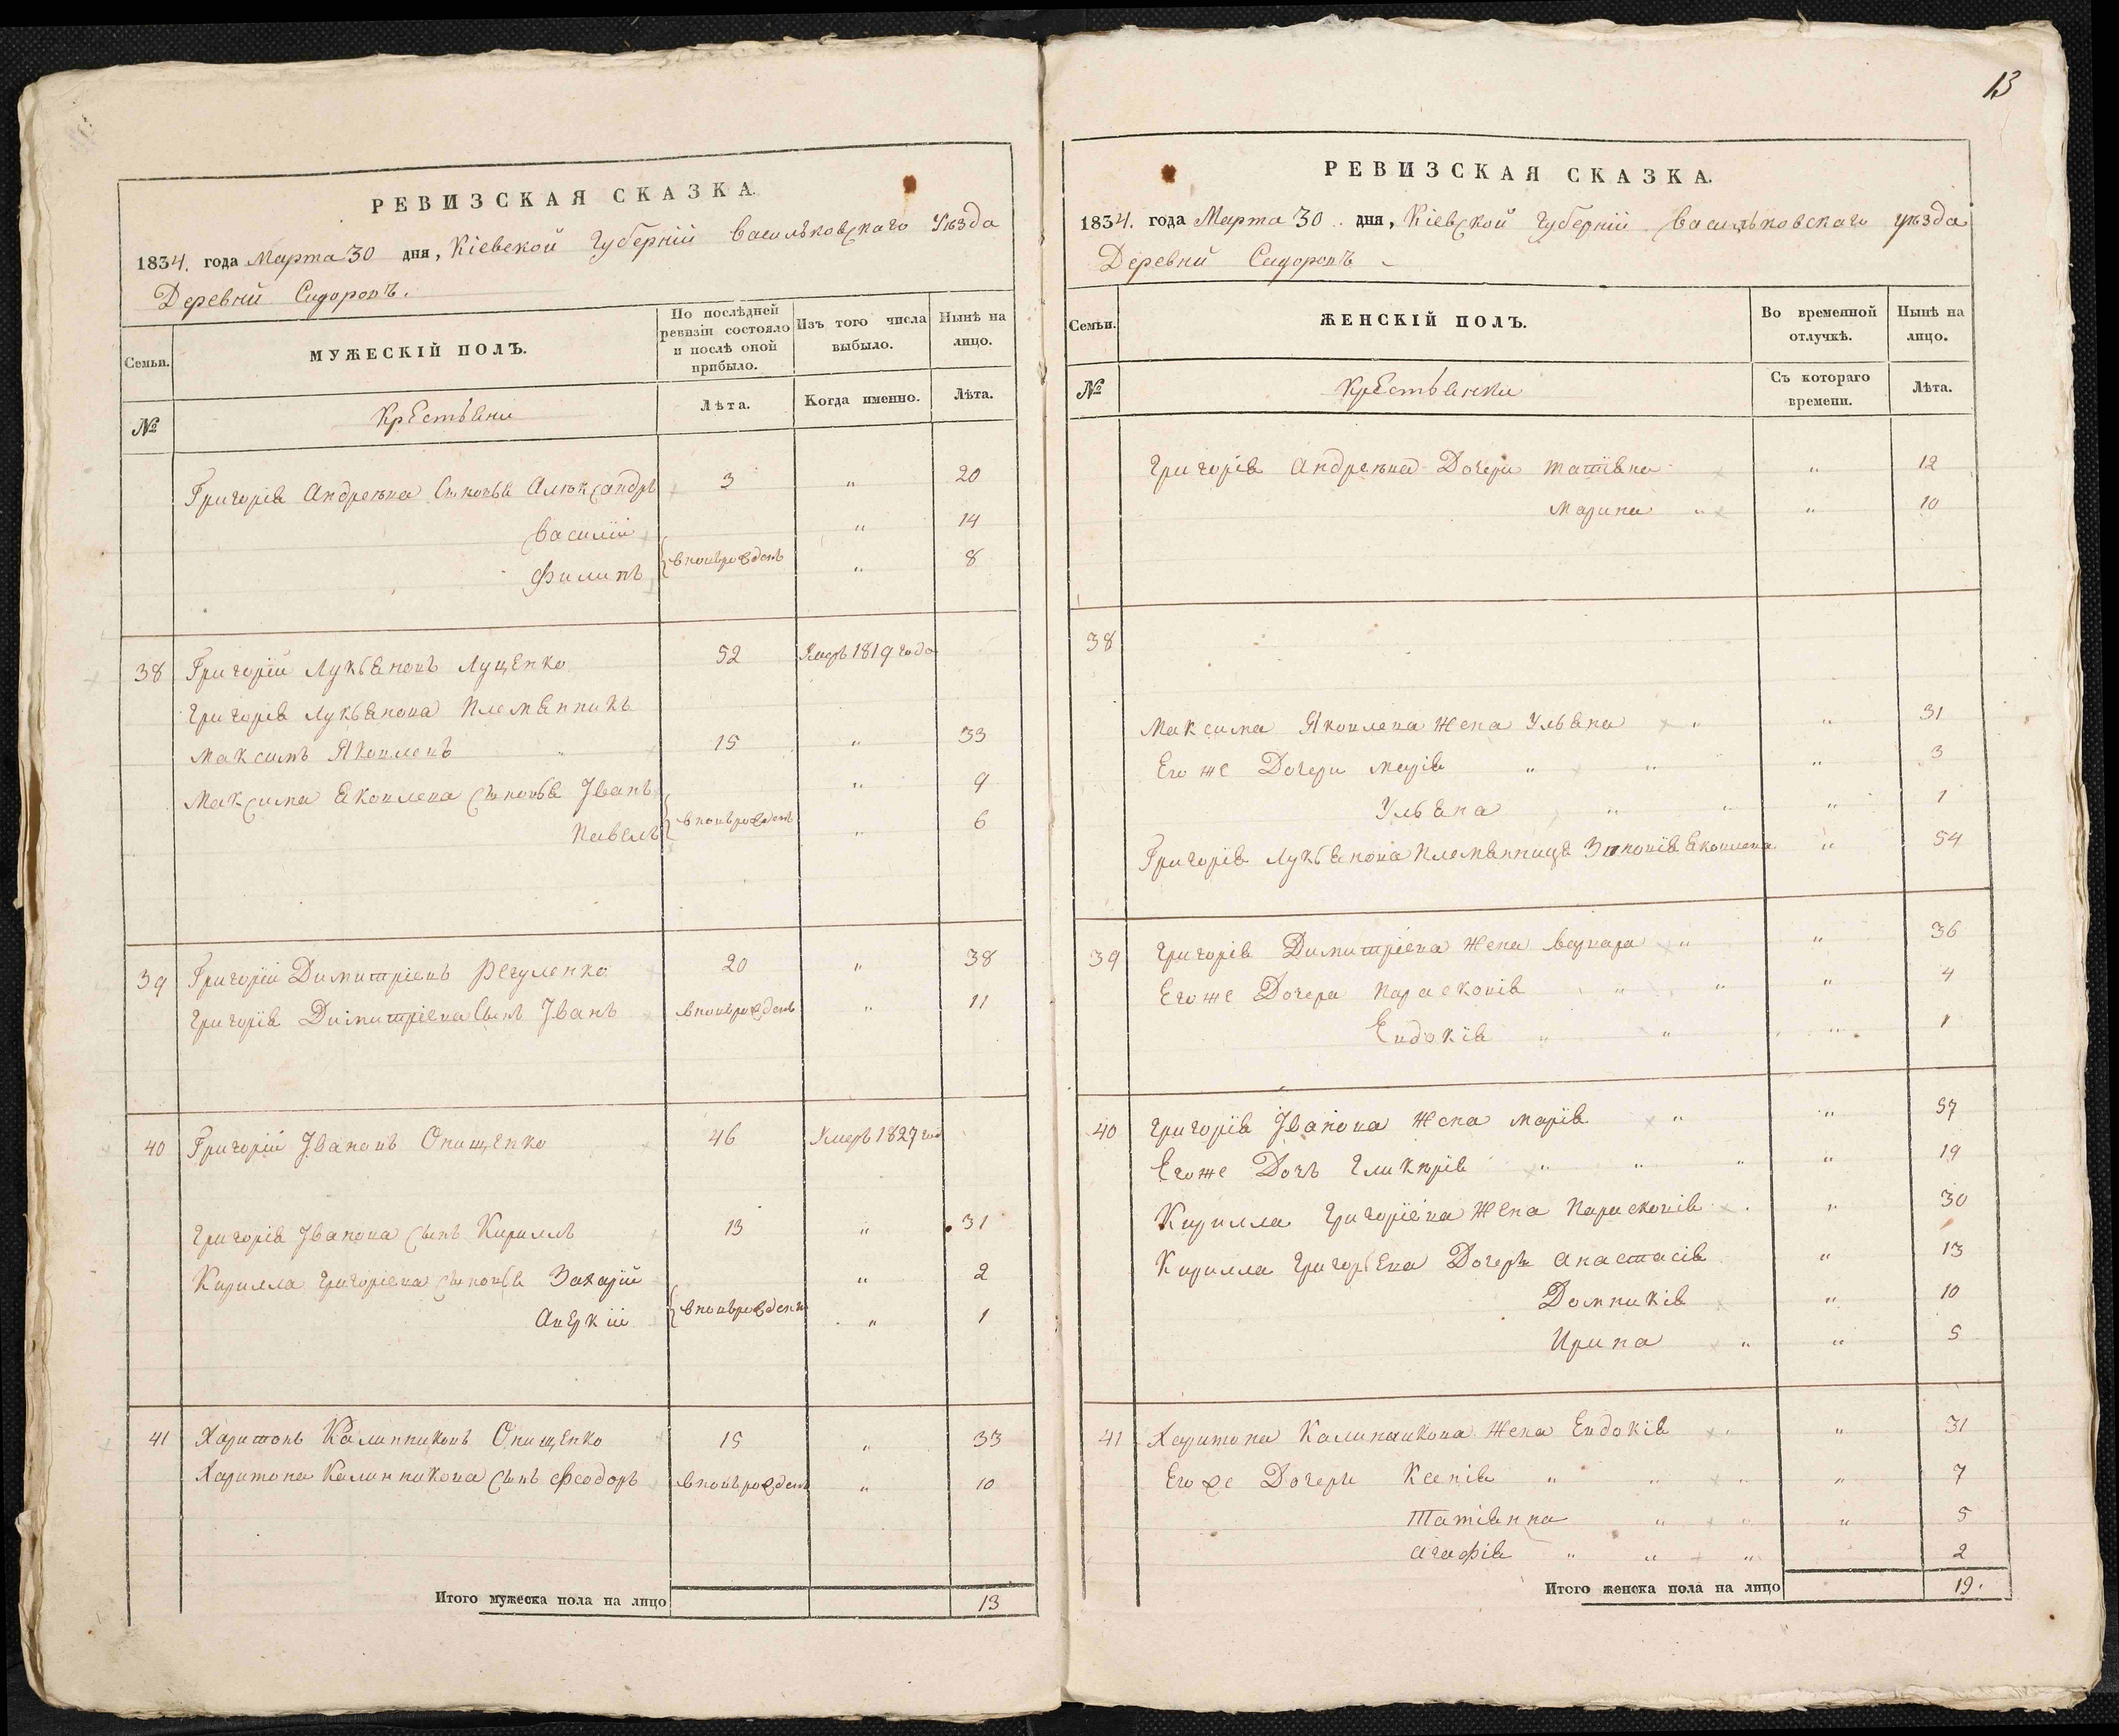 13
РЕВИЗСКАЯ СКАЗКА
1834. года Марта 30 дня, Кіевской Губерніи Васильковскаго Уѣзда
Деревни Сидоровъ.
Семьи.
МУЖЕСКІЙ ПОЛЪ.
По послѣдней ревизіи состояло и послѣ оной прибыло.
Изъ того числа выбыло.
Нынѣ на лицо.
№
Крестьяни
Лѣта.
Когда именно.
Лѣта.
Григорія Андреева Сыновья Александръ 3 " 20
Василій " 14
Филипъ вновьрожденъ " 8
38 Григорій Лукьяновъ Луценко 52 Умеръ 1819 года
Григорія Лукьянова Племянникъ
Максимъ Яковлевъ 15 " 33
Максима Яковлева Сыновья Іванъ " 9
Павелъ вновьрожденъ " 6
39 Григорій Димитріевъ Регуленко 20 " 38
Григорія Димитріева Сынъ Іванъ вновьрожденъ " 11
40 Григорій Івановъ Онищенко 46 Умеръ 1827 год
Григорія Іванова Сынъ Кириллъ 13 " 31
Кирилла Григоріева Сыновья Захарій " 2
Аверкій вновьрожденъ " 1
41 Харитонъ Калинниковъ Онищенко 15 " 33
Харитона Калинникова Сынъ Феодоръ вновьрожденъ " 10
Итого мужеска пола на лицо 13
РЕВИЗСКАЯ СКАЗКА.
1834. года Марта 30 дня, Кіевской Губерніи Васильковскаго уѣзда
Деревни Сидоровъ
Семьи.
ЖЕНСКІЙ ПОЛЪ.
Во временной отлучкѣ.
Нынѣ на лицо.
№
Крестьянки
Съ котораго времени.
Лѣта.
Григорія Андреева Дочери Татіяна " 12
Марина " " 10
38
Максима Яковлева Жена Ульяна " " 31
Его же Дочери Марія " " " 3
Ульяна " " " 1
Григорія Лукьянова Племянница Зиновія Яковлева " 54
39 Григорія Димитріева Жена Варвара " " 36
Его же Дочера Парасковія " " " 4
Евдокія " " " 1
40 Григорія Іванова Жена Марія " " 57
Его же Дочь Гликерія " " " " 19
Кирилла Григоріева Жена Парасковія " 30
Кирилла Григорьева Дочеръ Анастасія " 13
Домникія " 10
Ирина " " 5
41 Харитона Калинникова Жена Евдокія " " 31
Его же Дочери Ксенія " " " " 7
Татіянна " " " 5
Агафія " " " 2
Итого женска пола на лицо 19.